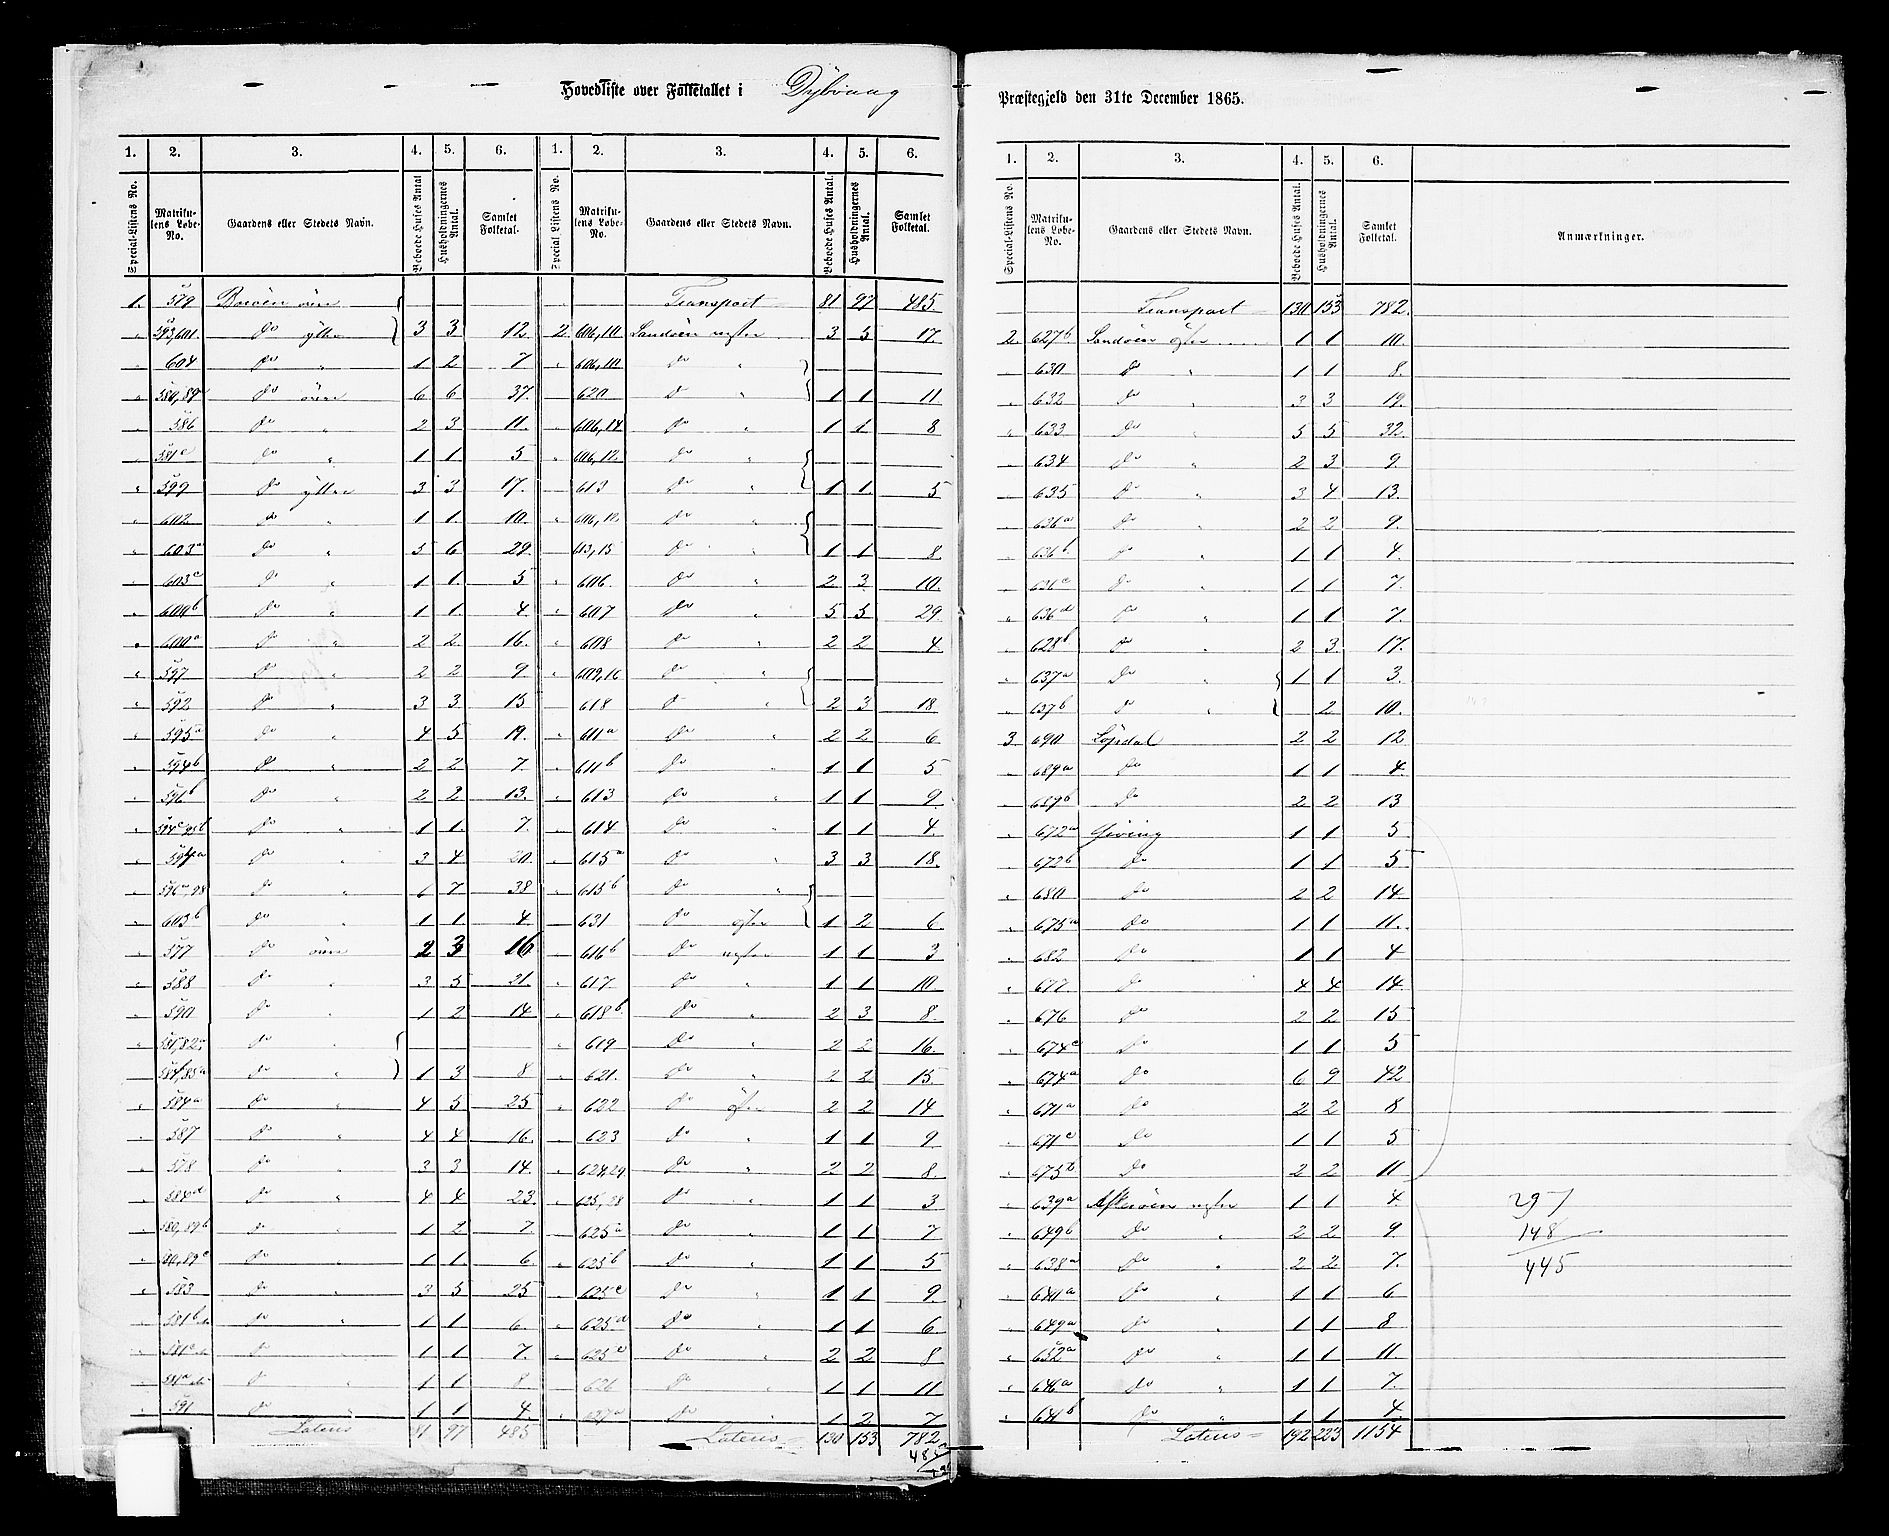 Hovedliste over Folketallet i Dybvaag
Præstegjeld den 31te December 1865.
1. 2. 3. 4. 5. 6. 1. 2. 3. 4. 5. 6.
Special-Listens No. Matrikulens Løbe-No. Gaardens eller Stedets Navn. Beboede Huses Antal Husholdningernes Antal. Samlet Folketal. Special Listens No. Matrikulens Løbe-No. Gaardens eller Stedets Navn. Beboede Huses Antal. Husholdningernes Antal. Samlet Folketal.
1. 579 Borøen øvre { Transport 81 97 485.
" 593,601 do ytter } 3 3 12. 2. 606,10 Sandøen vestre 3 5 17.
" 604 do " 1 2 7 " 606,10 do " }
" 580,89a do øvre 6 6 37. 620 do " { 1 1 11
" 586 do " 2 3 11. " 606,14 do " 1 1 8
" 581c do " 1 1 5 " 606,12. do " {
" 599 do yttre 3 3 17. " 613 do " { 1 1. 5
" 602 do " 1 1. 10. " 606,12 do " {
" 603a do " 5 6 29. 613,15 do " { 1 1 8.
" 603c do " 1 1. 5 " 606. do " 2 3 10.
" 600b do " 1 1. 4 " 607 do " 5 5 29.
" 600a do " 2 2. 16. " 608 do " 2 2 4.
" 597 do " 2 2 9. " 609,16 do " {
" 592 do " 3 3. 15 618 do " { 2 3 18
" 595a do " 4 5 19. " 611a do " 2 2 6
" 594b do " 2 2 7. " 611b do " 1 1 5
" 596b do " 2 2 13. " 613 do " 1 1 9.
" 594c,95b do " 1 1. 7. " 614 do " 1 1 4.
" 594a do " 3 4 20. " 615a do " 3 3 18.
" 596a,98 do " 6 7 38 " 615b do " {
" 603b do " 1 1 4. 631 do østre { 1 2 6.
" 577 do øvre 2 3 16 " 616b do vestre 1 1 3
" 588 do " 3 5 21. " 617. do " 1 1 10
" 590 do " 1 2 14 " 618b. do " 2 3 8.
" 581,82a do " { 619 do " 2 2 16.
584,85a do " } 1 3 8 " 621. do " 2 2 15.
" 584a do " 4 5 25 " 622 do østre 2 2 14
" 587 do " 4 4 16. " 623 do " 1 1 9
" 578 do " 3 3 14. " 624,29 do " 2 2 8.
" 584d do " 4 4 23. " 625,28 do " 1 1 3
" 580,89b do " 1 2 7. " 625a do " 1 1 7
" 80,89c do " 1 1. 6. " 625b do " 1 1 5
" 583 do " 3 5 25 " 625c do " 1 1 9.
" 581b do " 1 1 6 " 625d do " 1 1 6.
" 581c do " 1 1 7. " 625e do " 2 2 8
" 581a do " 1 1 8. 626 do " 1 1 11
" 591 do " 1 1 4. " 627a do 1 2 7
Latus 81 97 485 Latus 130 153 782
485
1. 2. 3. 4. 5. 6.
Special-Listens No. Matrikulens Løbe-No. Gaardens eller Stedets Navn. Beboede Huses Antal. Husholdningernes Antal. Samlet Folketal. Anmærkninger.
Transport 130 153 782.
2. 627b Sandøen østre 1 1 10.
" 630 do " 1 1 8.
" 632 do " 3 3 19.
" 633 do " 5 5 32.
" 634 do " 2 3 9.
" 635 do " 3 4 13.
" 636a do " 2 2 9.
" 636b do " 1 1 4.
" 636c do " 1 1 7.
" 636d do " 1 1 7.
" 628b do " 2 3. 17.
" 637a do " { 1 1 3.
" 637b do " { 2 10.
3. 690 Løvdal 2 2 12
" 689a do 1 1 4
" 689b do 2 2 13
" 672a Gjeving 1 1 5
" 672b do 1 1 5
" 680 do 2 2 14
" 675a do 1 1 11.
" 682 do 1 1 4
" 677. do 4 4 14
" 676 do 2 2 15
" 674c do 1 1 5
" 674a do 6 9 42
" 671a do 2 2 8
" 671c do 1 1 5
" 675b do 2 2 11
" 639a Askerøen vestre 1 1 4. 297
" 649b do " 2 2 9. 148
" 638a do " 2 2 7. 445
" 640a do " 1 1 6
" 649a do " 1 1 8
" 652a do " 1 1 11.
" 646a do " 1 1 7.
" 641b do " 1 1 4.
Latus 192 223 1154